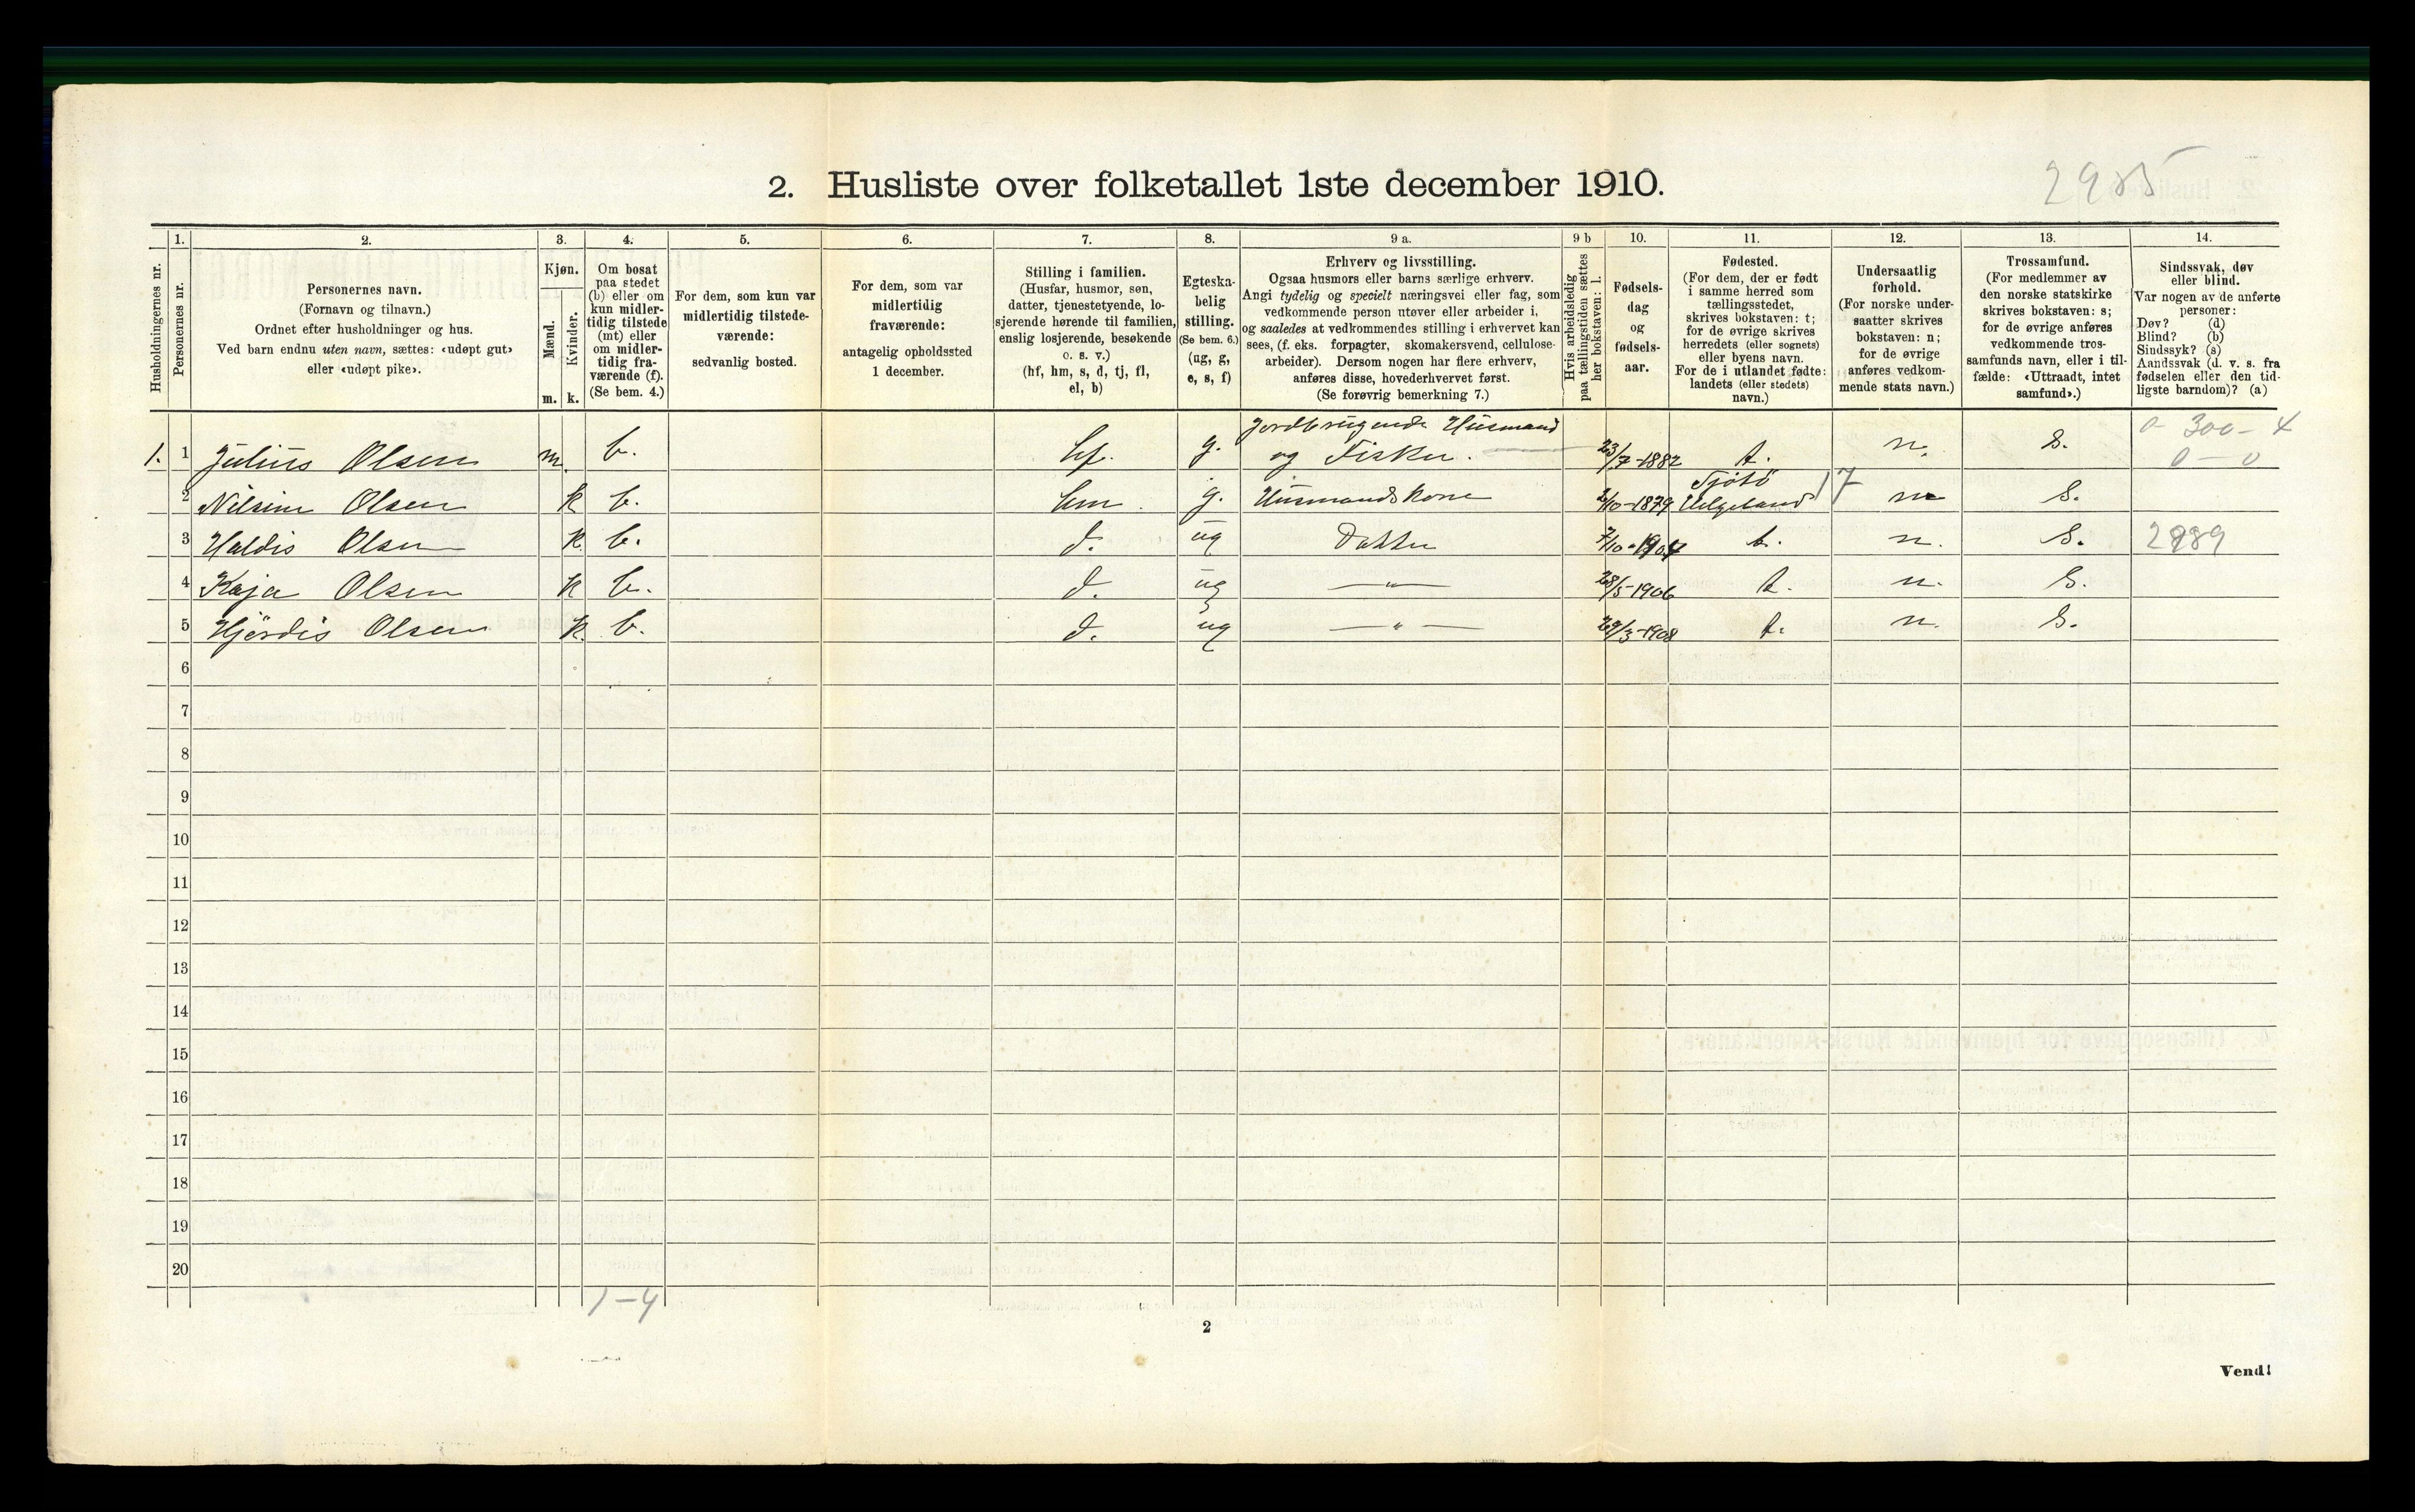 2985
2. Husliste over folketallet 1ste december 1910.
Husholdningernes nr.
1.
Personernes nr.
2.
Personernes navn.
(Fornavn og tilnavn.)
Ordnet efter husholdninger og hus.
Ved barn endnu uten navn, sættes: «udøpt gut»
eller «udøpt pike».
3.
Kjøn.
Mænd.
Kvinder.
m. k.
4.
Om bosat
paa stedet
(b) eller om
kun midler-
tidig tilstede
(mt) eller
om midler-
tidig fra-
værende (f).
(Se bem. 4.)
5.
For dem, som kun var
midlertidig tilstede-
værende:
sedvanlig bosted.
6.
For dem, som var
midlertidig
fraværende:
antagelig opholdssted
1 december.
7.
Stilling i familien.
(Husfar, husmor, søn,
datter, tjenestetyende, lo-
sjerende hørende til familien,
enslig losjerende, besøkende
o. s. v.)
(hf, hm, s, d, tj, fl,
el, b)
8.
Egteska-
belig
stilling.
(Se bem. 6.)
(ug, g,
e, s, f)
9 a.
Erhverv og livsstilling.
Ogsaa husmors eller barns særlige erhverv.
Angi tydelig og specielt næringsvei eller fag, som
vedkommende person utøver eller arbeider i,
og saaledes at vedkommendes stilling i erhvervet kan
sees, (f. eks. forpagter, skomakersvend, cellulose-
arbeider). Dersom nogen har flere erhverv,
anføres disse, hovederhvervet først.
(Se forøvrig bemerkning 7.)
9 b
Hvis arbeidsledig
paa tællingstiden sættes
her bokstaven: l.
10.
Fødsels-
dag
og
fødsels-
aar.
11.
Fødested.
(For dem, der er født
i samme herred som
tællingsstedet,
skrives bokstaven: t;
for de øvrige skrives
herredets (eller sognets)
eller byens navn.
For de i utlandet fødte:
landets (eller stedets)
navn.)
12.
Undersaatlig
forhold.
(For norske under-
saatter skrives
bokstaven: n;
for de øvrige
anføres vedkom-
mende stats navn.)
13.
Trossamfund.
(For medlemmer av
den norske statskirke
skrives bokstaven: s;
for de øvrige anføres
vedkommende tros-
samfunds navn, eller i til-
fælde: «Uttraadt, intet
samfund».)
14.
Sindssvak, døv
eller blind.
Var nogen av de anførte
personer:
Døv? (d)
Blind? (b)
Sindssyk? (s)
Aandssvak (d. v. s. fra
fødselen eller den tid-
ligste barndom)? (a)
Jordbrugende Husmand 0 300 - 4
1. 1 Julius Olsen m. b. hf. g. og Fisker. 23/7-1882 t. n. S. 0 - 0
Tjötö 17
2 Nilsine Olsen k b. hm. g. Husmandskone 2/10-1879 Helgeland n S.
3 Haldis Olsen k. b. d. ug Datter 7/10-1904 t. n. S. 2989
4 Kaja Olsen k b. d. ug —"— 28/5-1906 t. n. S.
5 Hjördis Olsen k. b. d. ug —"— 29/3-1908 t. n. S.
6
7
8
9
10
11
12
13
14
15
16
17
18
19
20
1-4
2
Vend!